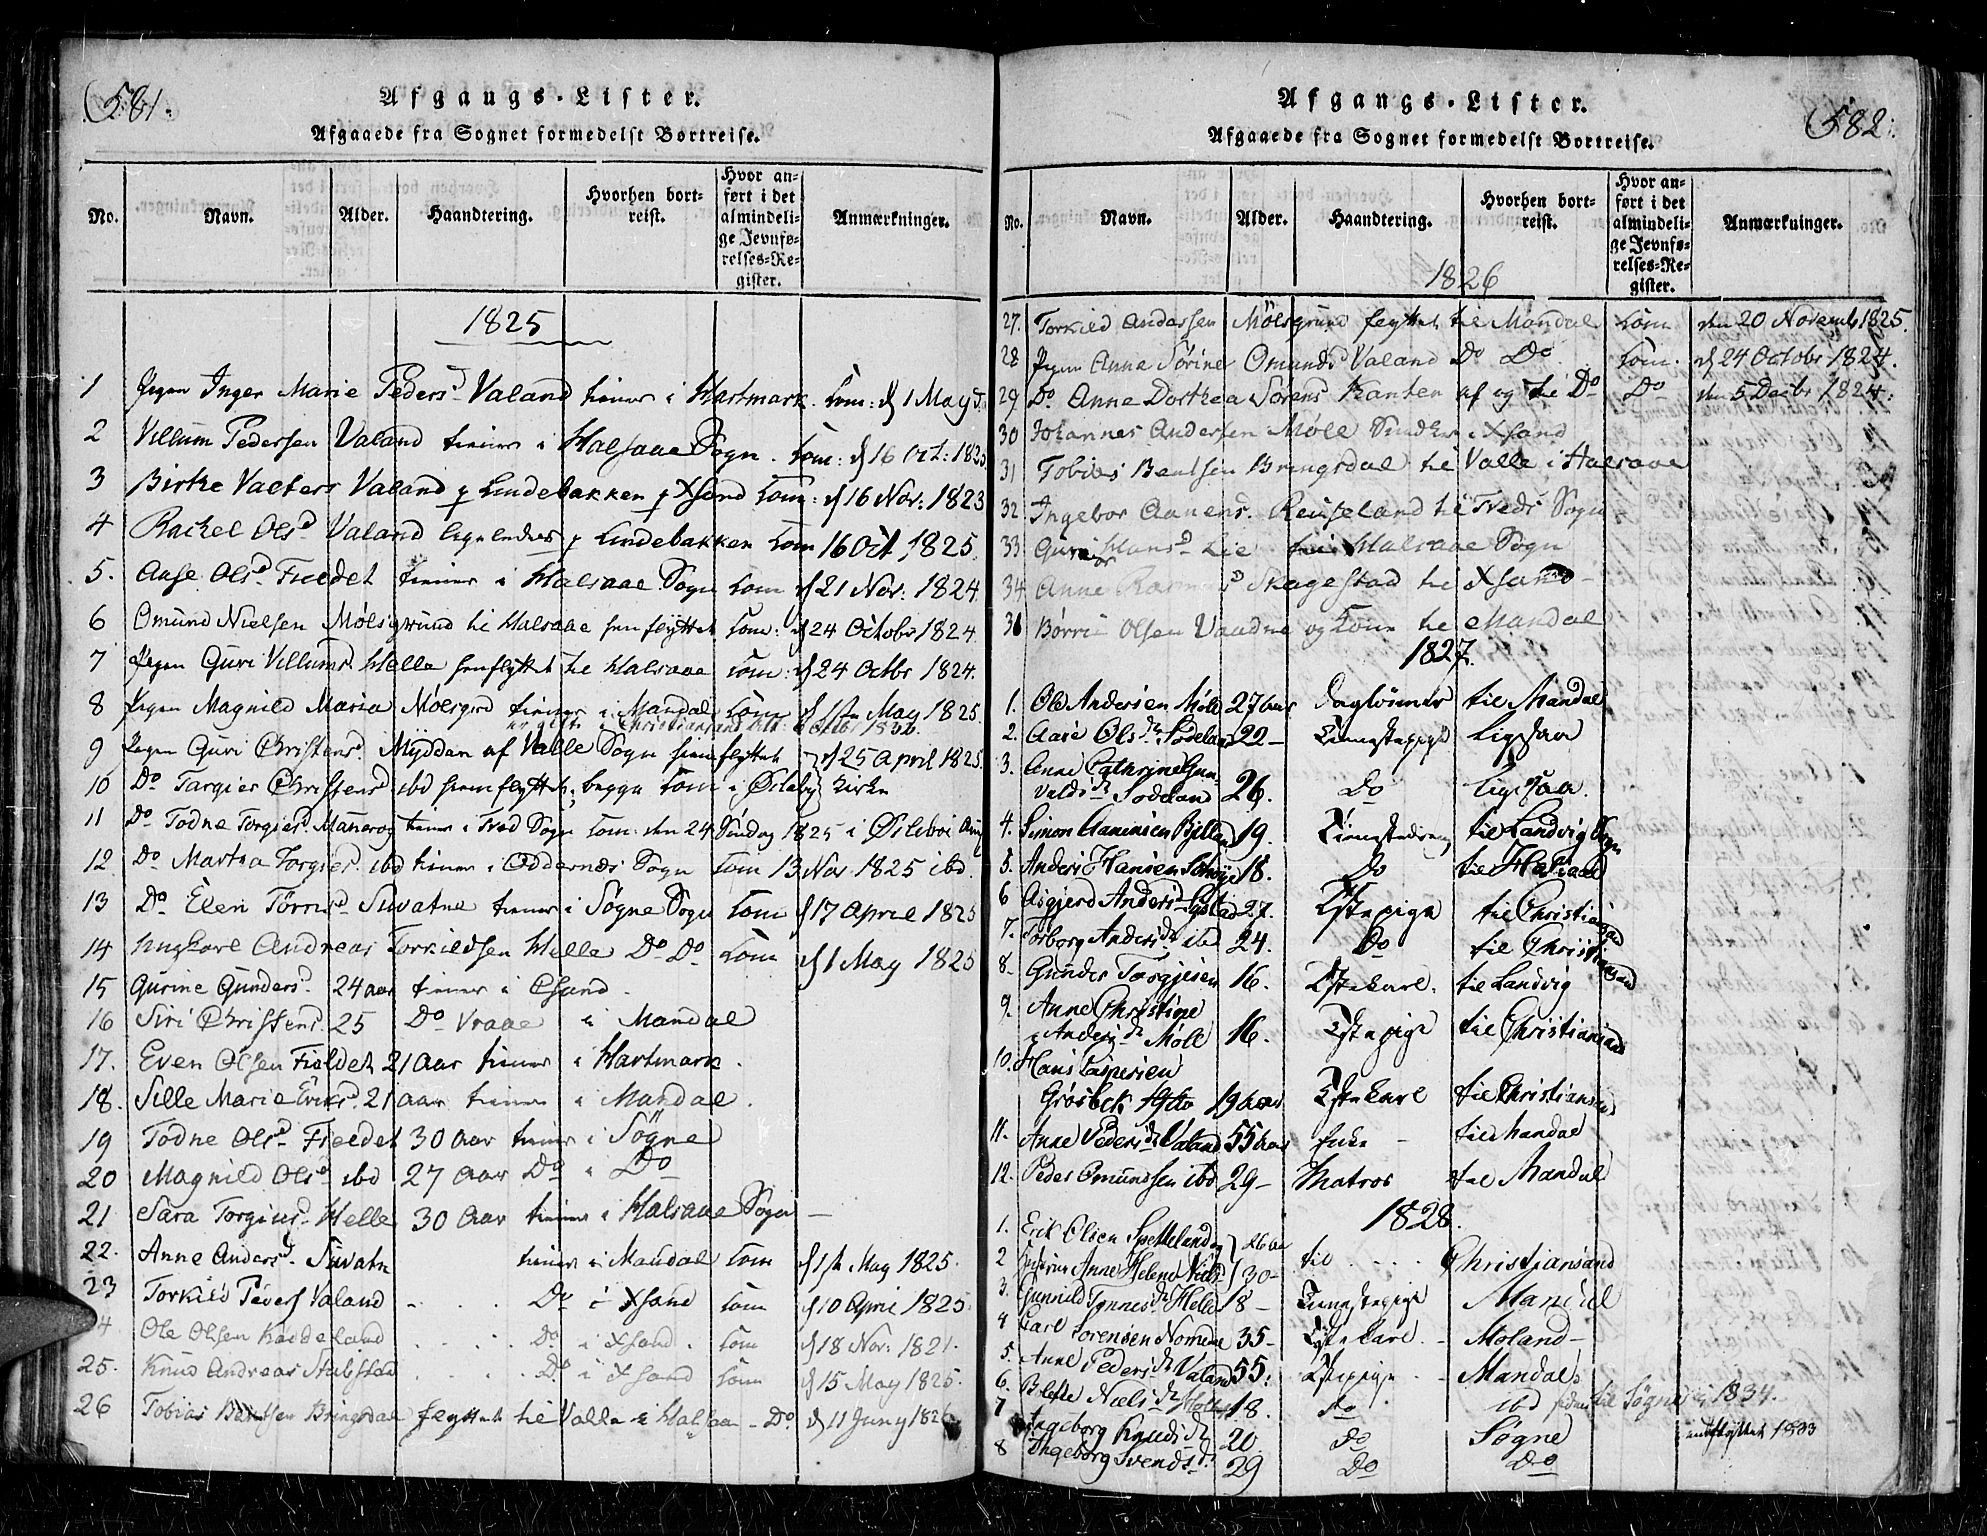 581.
Afgangs-Lister.
Afgaaede fra Sognet formedelst Bortreise.
No. Navn. Alder. Haandtering. Hvorhen bortreist. Hvor anført i det almindelige Jevnførelses-Register. Anmærkninger.
1825
1 Pigen Inger Marie Pedersd Valand tiener i Hartmark. kom: d 1 May
2 Villum Pedersen Valand tiener i Halsaae Sogn. kom: d 16 Oct: 183
3 Birthe Valters Valand p Lindebakken p Xsand kom: d 16 Nov: 1823
4 Rachel Olsd Valand ligeledes p Lindebakken kom 16 Oct 1825.
5. Aase Olsd Fieldet tiener i Halsaae Sogn kom d 21 Nov: 1824.
6 Omund Nielsen Mølsgrund til Halsaae henflyttet kom: d 24 Octobr 1824.
7 Pigen Guri Villumsd Helle henflyttet til Halsaae kom: d 24 Octbr 1824.
8 Pigen Magnild Maria Mølsgrd tiener i Mandal kom d 1ste May 1825.
er gift i Christiansand 1836.
9 Pigen Guri Christensd. Myddan af Valle Sogn henflyttet d 25 April 1825.
10 Do Targier Christensd ibd henflyttet, begge kom i Øisleby Kirke
11 Do Todne Torgiersd. Mannevog tiener i Tved Sogn kom: den 24 Søndag 1825 i Øislebøe
12 Do Martha Torgiersd. ibd tiener i Oddernæs Sogn kom 13 Nov 1825 ibd.
13 Do Elen Tørresd Suvatne tiener i Søgne Sogn kom d 17 April 1825
14 Ungkarl Andreas Torkildsen Helle Do Do kom d 1 May 1825
15 Gurine Gundersd. 24 aar tiener i Chsand.
16 Siri Christensd. 25 Do Vraae i Mandal
17. Even Olsen Fieldet 21 Aar tiener i Hartmark.
18. Sille Marie Eriksd. 21 aar tiener i Mandal.
19 Todne Olsd Fieldet 30 Aar tiener i Søgne
20 Magnild Olsd ibd 27 Aar Do i Do
21 Sara Torgiusd. Helle 30 Aar tiener i Halsaae Sogn —
22. Anne Andersd. Suvatn tiener i Mandal kom d 1ste May 1825.
23 Torkild Peders Valand . . . Do i Xsand kom d 10 April 1825.
4 Ole Olsen Kaddeland . . . . Do i Xsand. kom d 18 Nov: 1821.
25. Knud Andreas Stubstad . . . . Do i Xsand kom d 15 May 1825.
26 Tobias Bentsen Bringsdal flyttet til Valle i Halsaa - Do d 11 Juny 1826
582.
Afgangs-Lister.
Afgaaede fra Sognet formedelst Bortreise.
No. Navn. Alder. Haandtering. Hvorhen bortreist. Hvor anført i det almindelige Jevnførelses-Register. Anmærkninger.
1826
27. Torkild Anderssen Mølsgrund flyttet til Mandal kom den 20 Novemb 1825.
28 Pigen Anne Sørine Omunds Valand Do Do kom. d 24 Octobr 1824.
29 Do Anne Dorthea Sørens Kanten af og til Do Do den 5 Decbr 1824.
30 Johannes Andersen Møll Snedker i Xsand
31 Tobias Bentsen Bringsdal til Valle i Halsaae
32 Ingebor Aanensd. Reiseland til Tveds Sogn
33 Guri Hansd Lie til Halsaae Sogn
34 Anne Rasmusd Skagestad til Xsand -
31 Børre Olsen Vaadne og Kone til Mandal
1827.
1. Ole Andersen Møll 27 Aar Dagleiner til Mandal
2. Aase Olsdr Sodeland 22 - Tienestepige Ligesaa
3. Anne Cathrine Gunvaldsdr Sodeland 26. Do ligesaa.
4. Simon Aanensen Bjlland 19. Tienestedreng til Landvig Sogn
5. Anders Hansen 18. Do til Halsaae
6 Asgjerd Anders 27. Tstepige til Christiansand
7. Torborg Andersdr ibd 24. Do til Christiansand
8. Gunder Torgjesen 16. Tstekarl. til Landvig
9. Anne Christine Andersdr Møll 16. Tstepige til Christiansand
10. Hans Caspersen Grøsbek 19 Aar Tstekarl til Christiansand
11. Anne Pedersdr Valand 55 Aar Enke - til Mandal
12. Peder Omundsen ibd 29 - Matros til Mandal
1828.
1. Erik Olsen Spetteland og 26 Aar
2 Anne Helene Nielsd 30 - til . . . . Christiansand
3. Gunnild Tønnesdr Helle 18 - Tienestepige Mandal
4 Carl Sørensen Nomene 35 - Tstekarl. - Moland -
5. Anne Pedersdr Valand 55. Tstepige - Mandals
6. Blette Nielsdr 18. do ibd siden til Søgne 1834.
7 Ingeborg Knudsdr 20. do Søgne indflyttet 1833
8 Ingeborg Svendsdr. 29 Do Do